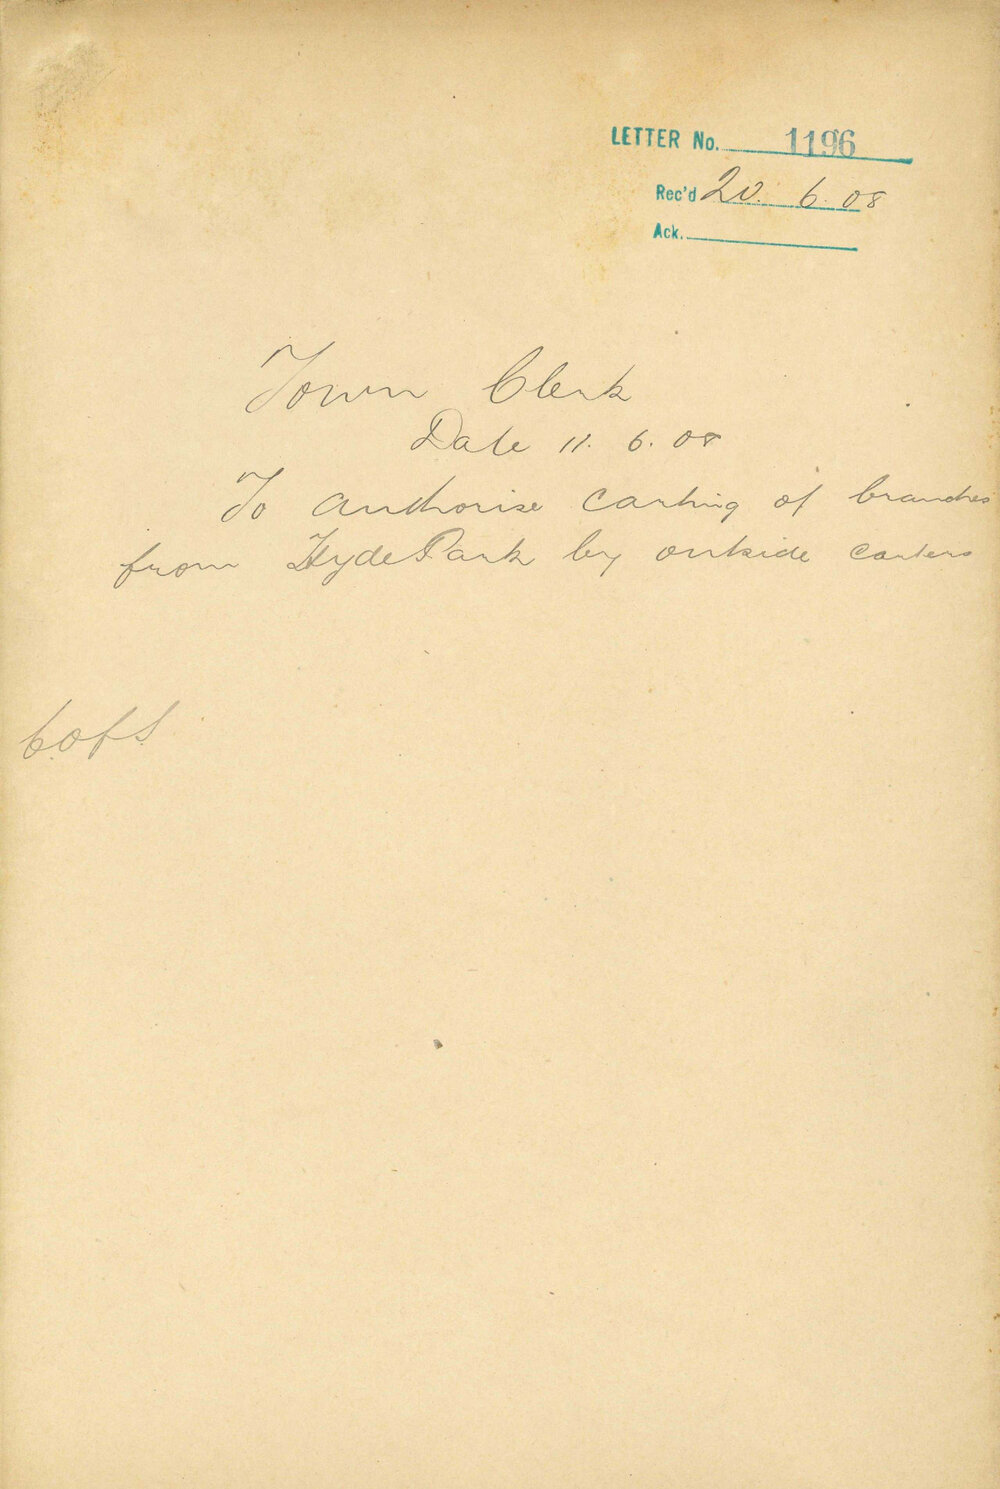 LETTER No. 1196
Rec'd 20. 6. 08
Ack.
Town Clerk
Date 11. 6. 08
To authorise carting of branches
from Hyde Park by outside carters
C.of.S.